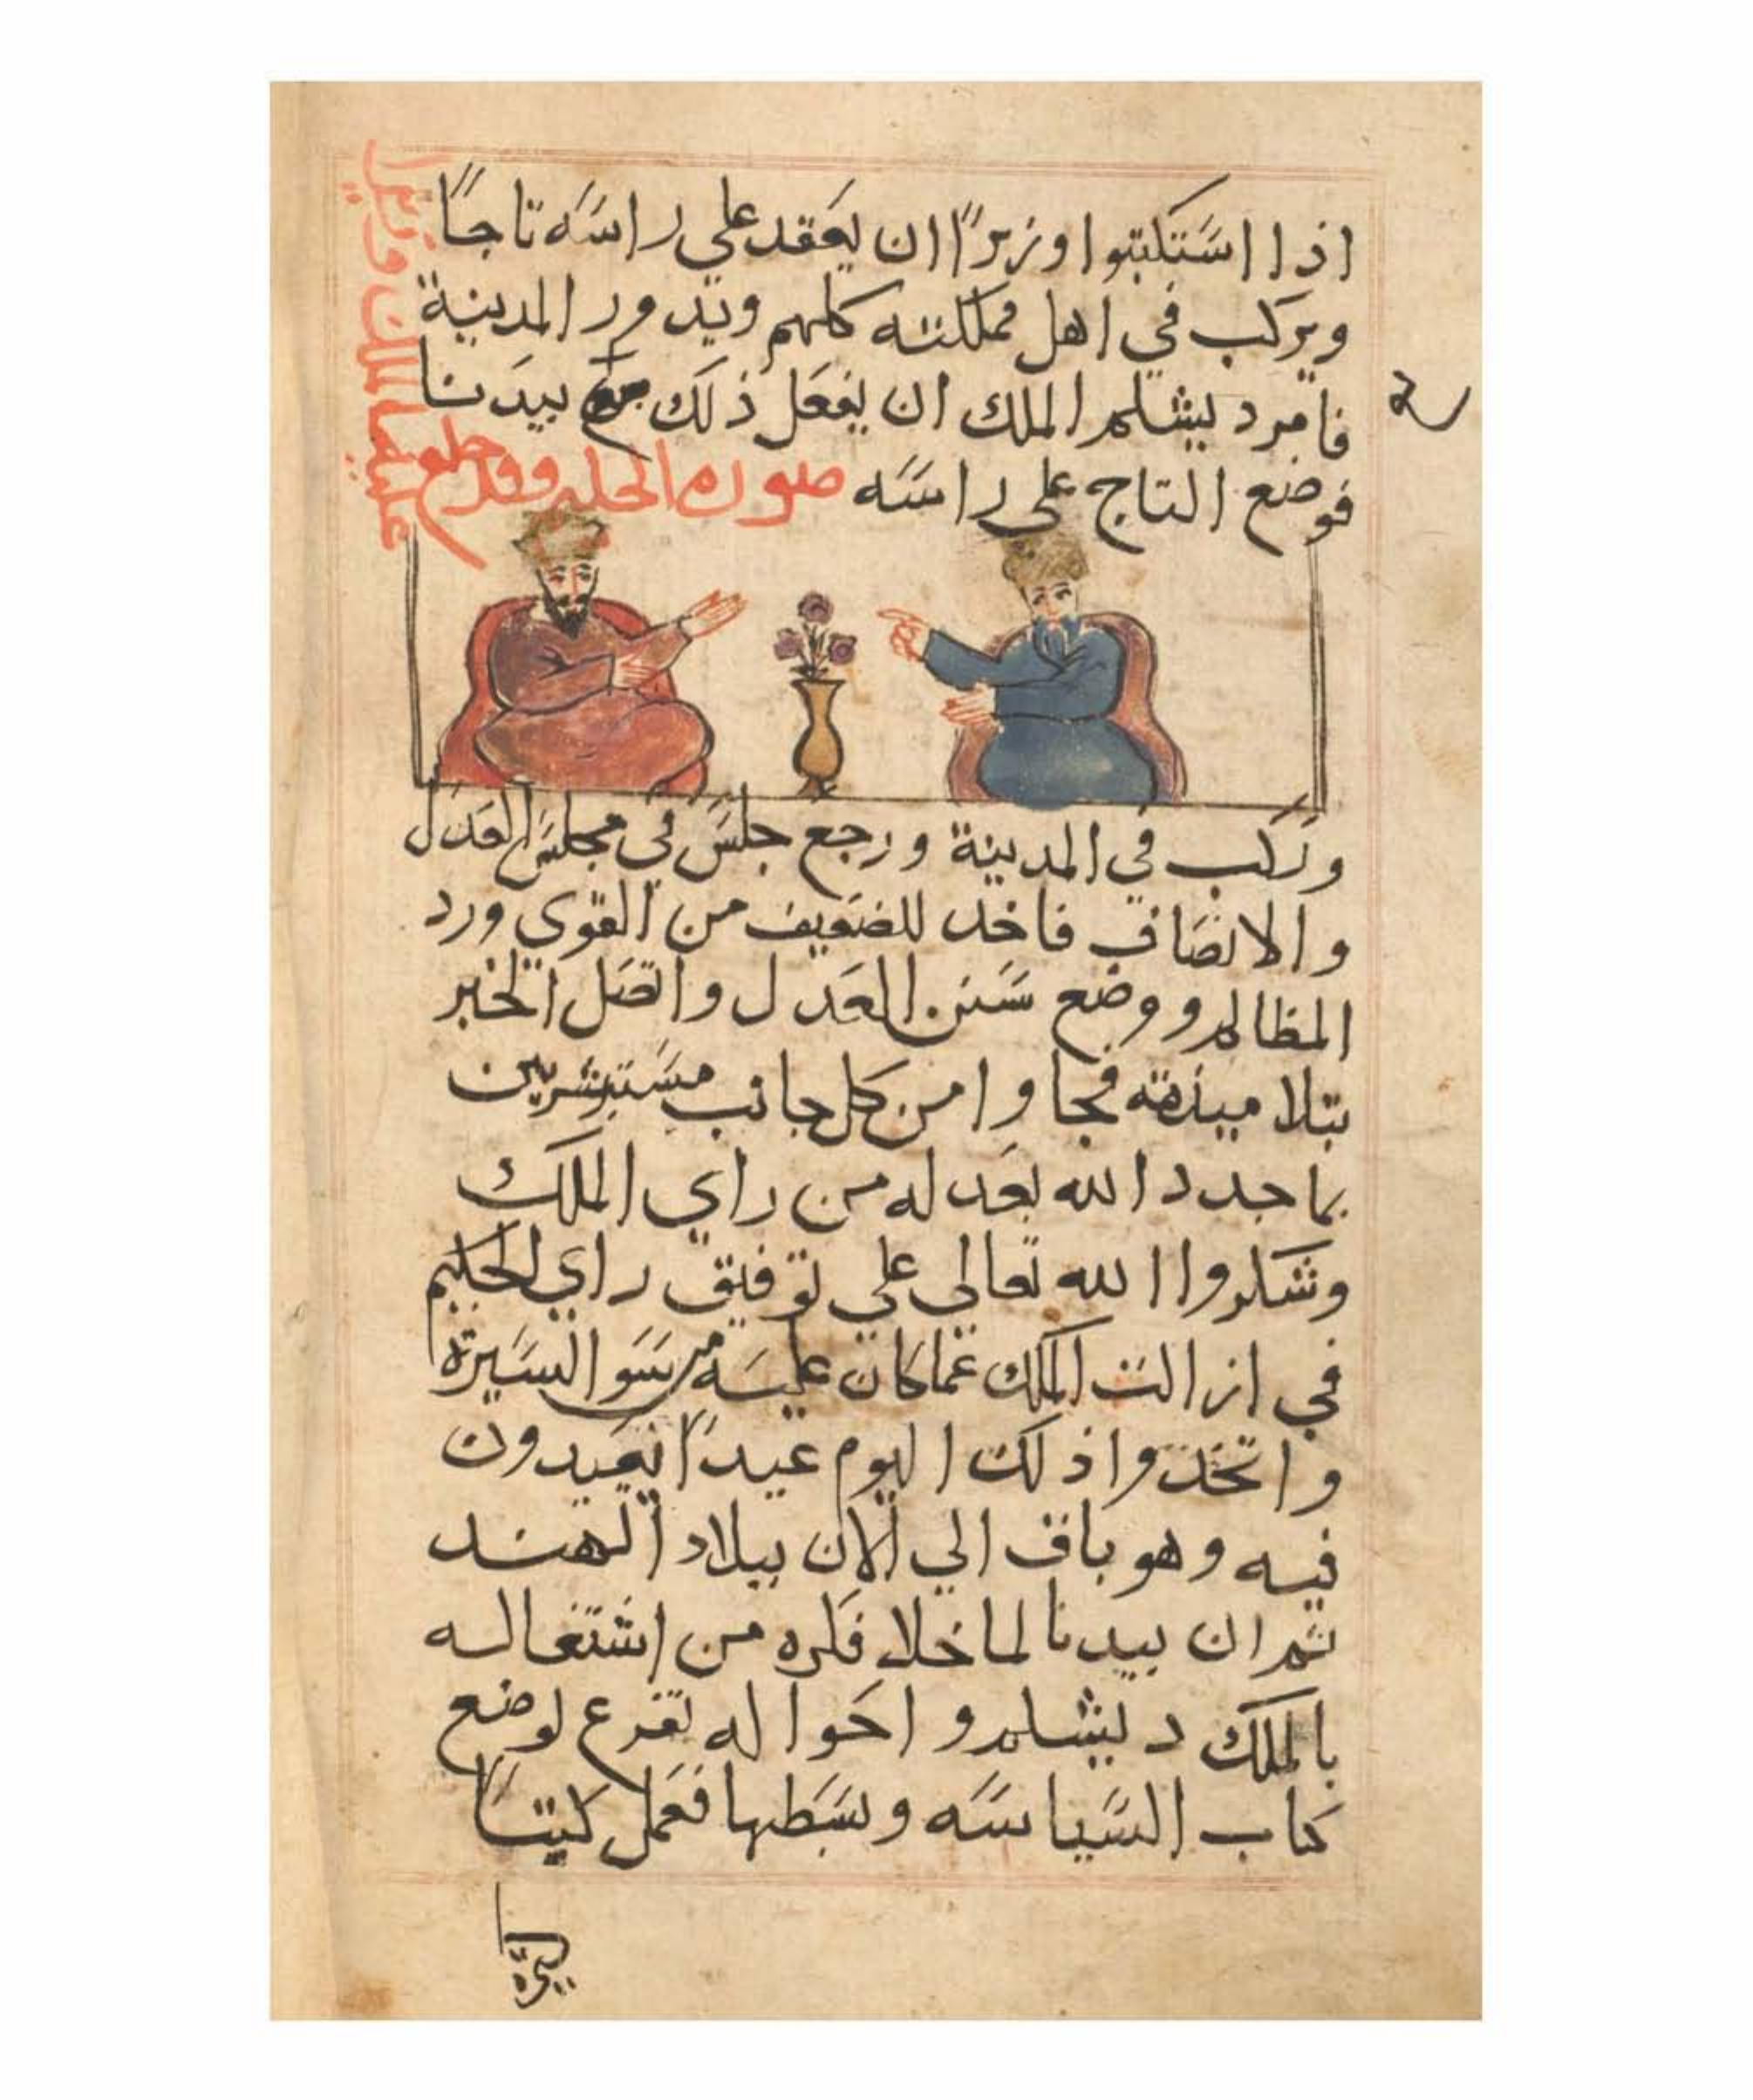 اذا استكتبوا وزيرًا ان يعقد علي راسه تاجًا
ويركب في اهل مملكته كلهم ويدور المدينة
فامر دبشلم الملك ان يفعل ذلك بيدبا
فوضع التاج على راسه صورة الحكيم وقد خلع
عليه الملك
وركب في المدينة ورجع جلس في مجلس العدل
والانصاف فاخد للضعيف من القوي ورد
المظالم ووضع سنن العدل واتصل الخبر
بتلاميذه فجاوا من كل جانب مستبشرين
بما جدد الله بعد له من راي الملك
وشكروا الله تعالي علي توفيق راي الحكيم
في ازالت الملك عما كان عليه من سو السيرة
واتخذوا ذلك اليوم عيدًا يعيدون
فيه وهو باق الي الان ببلاد الهند
ثم ان بيدبا لما خلا فكره من اشتغاله
بالملك دبشلم واحواله تفرع لوضع
كتاب السياسه وبسطها فعمل كتبًا
كثيرة